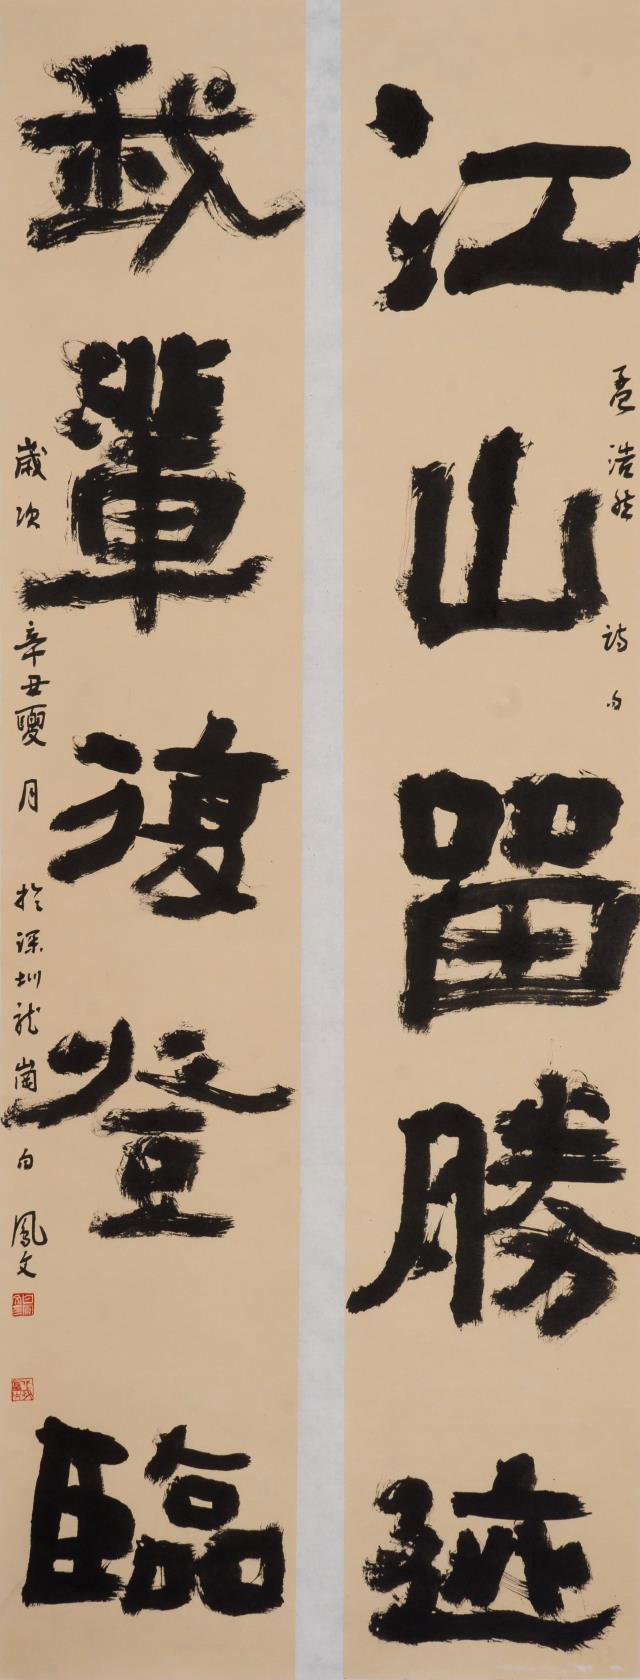 江山留勝迹
孟浩然詩句
我輩復登臨
歲次辛丑夏月於深圳龍崗白鳳文